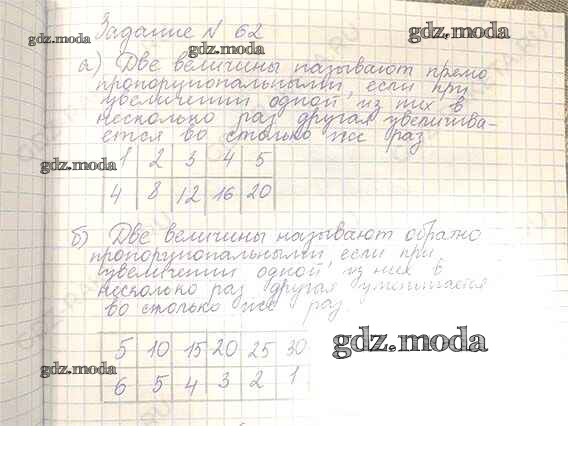 Задание № 62
gdz.moda
gdz.moda
gdz.moda
а) Две величины называют прямо
пропорциональными, если при
увеличении одной из них в
несколько раз другая увеличива-
ется во столько же раз
gdz.moda
1 2 3 4 5
4 8 12 16 20
gdz.moda
б) Две величины называют обратно
пропорциональными, если при
увеличении одной из них в
несколько раз другая уменьшается
во столько же раз.
5 10 15 20 25 30
gdz.moda
gdz.moda
6 5 4 3 2 1
gdz.moda